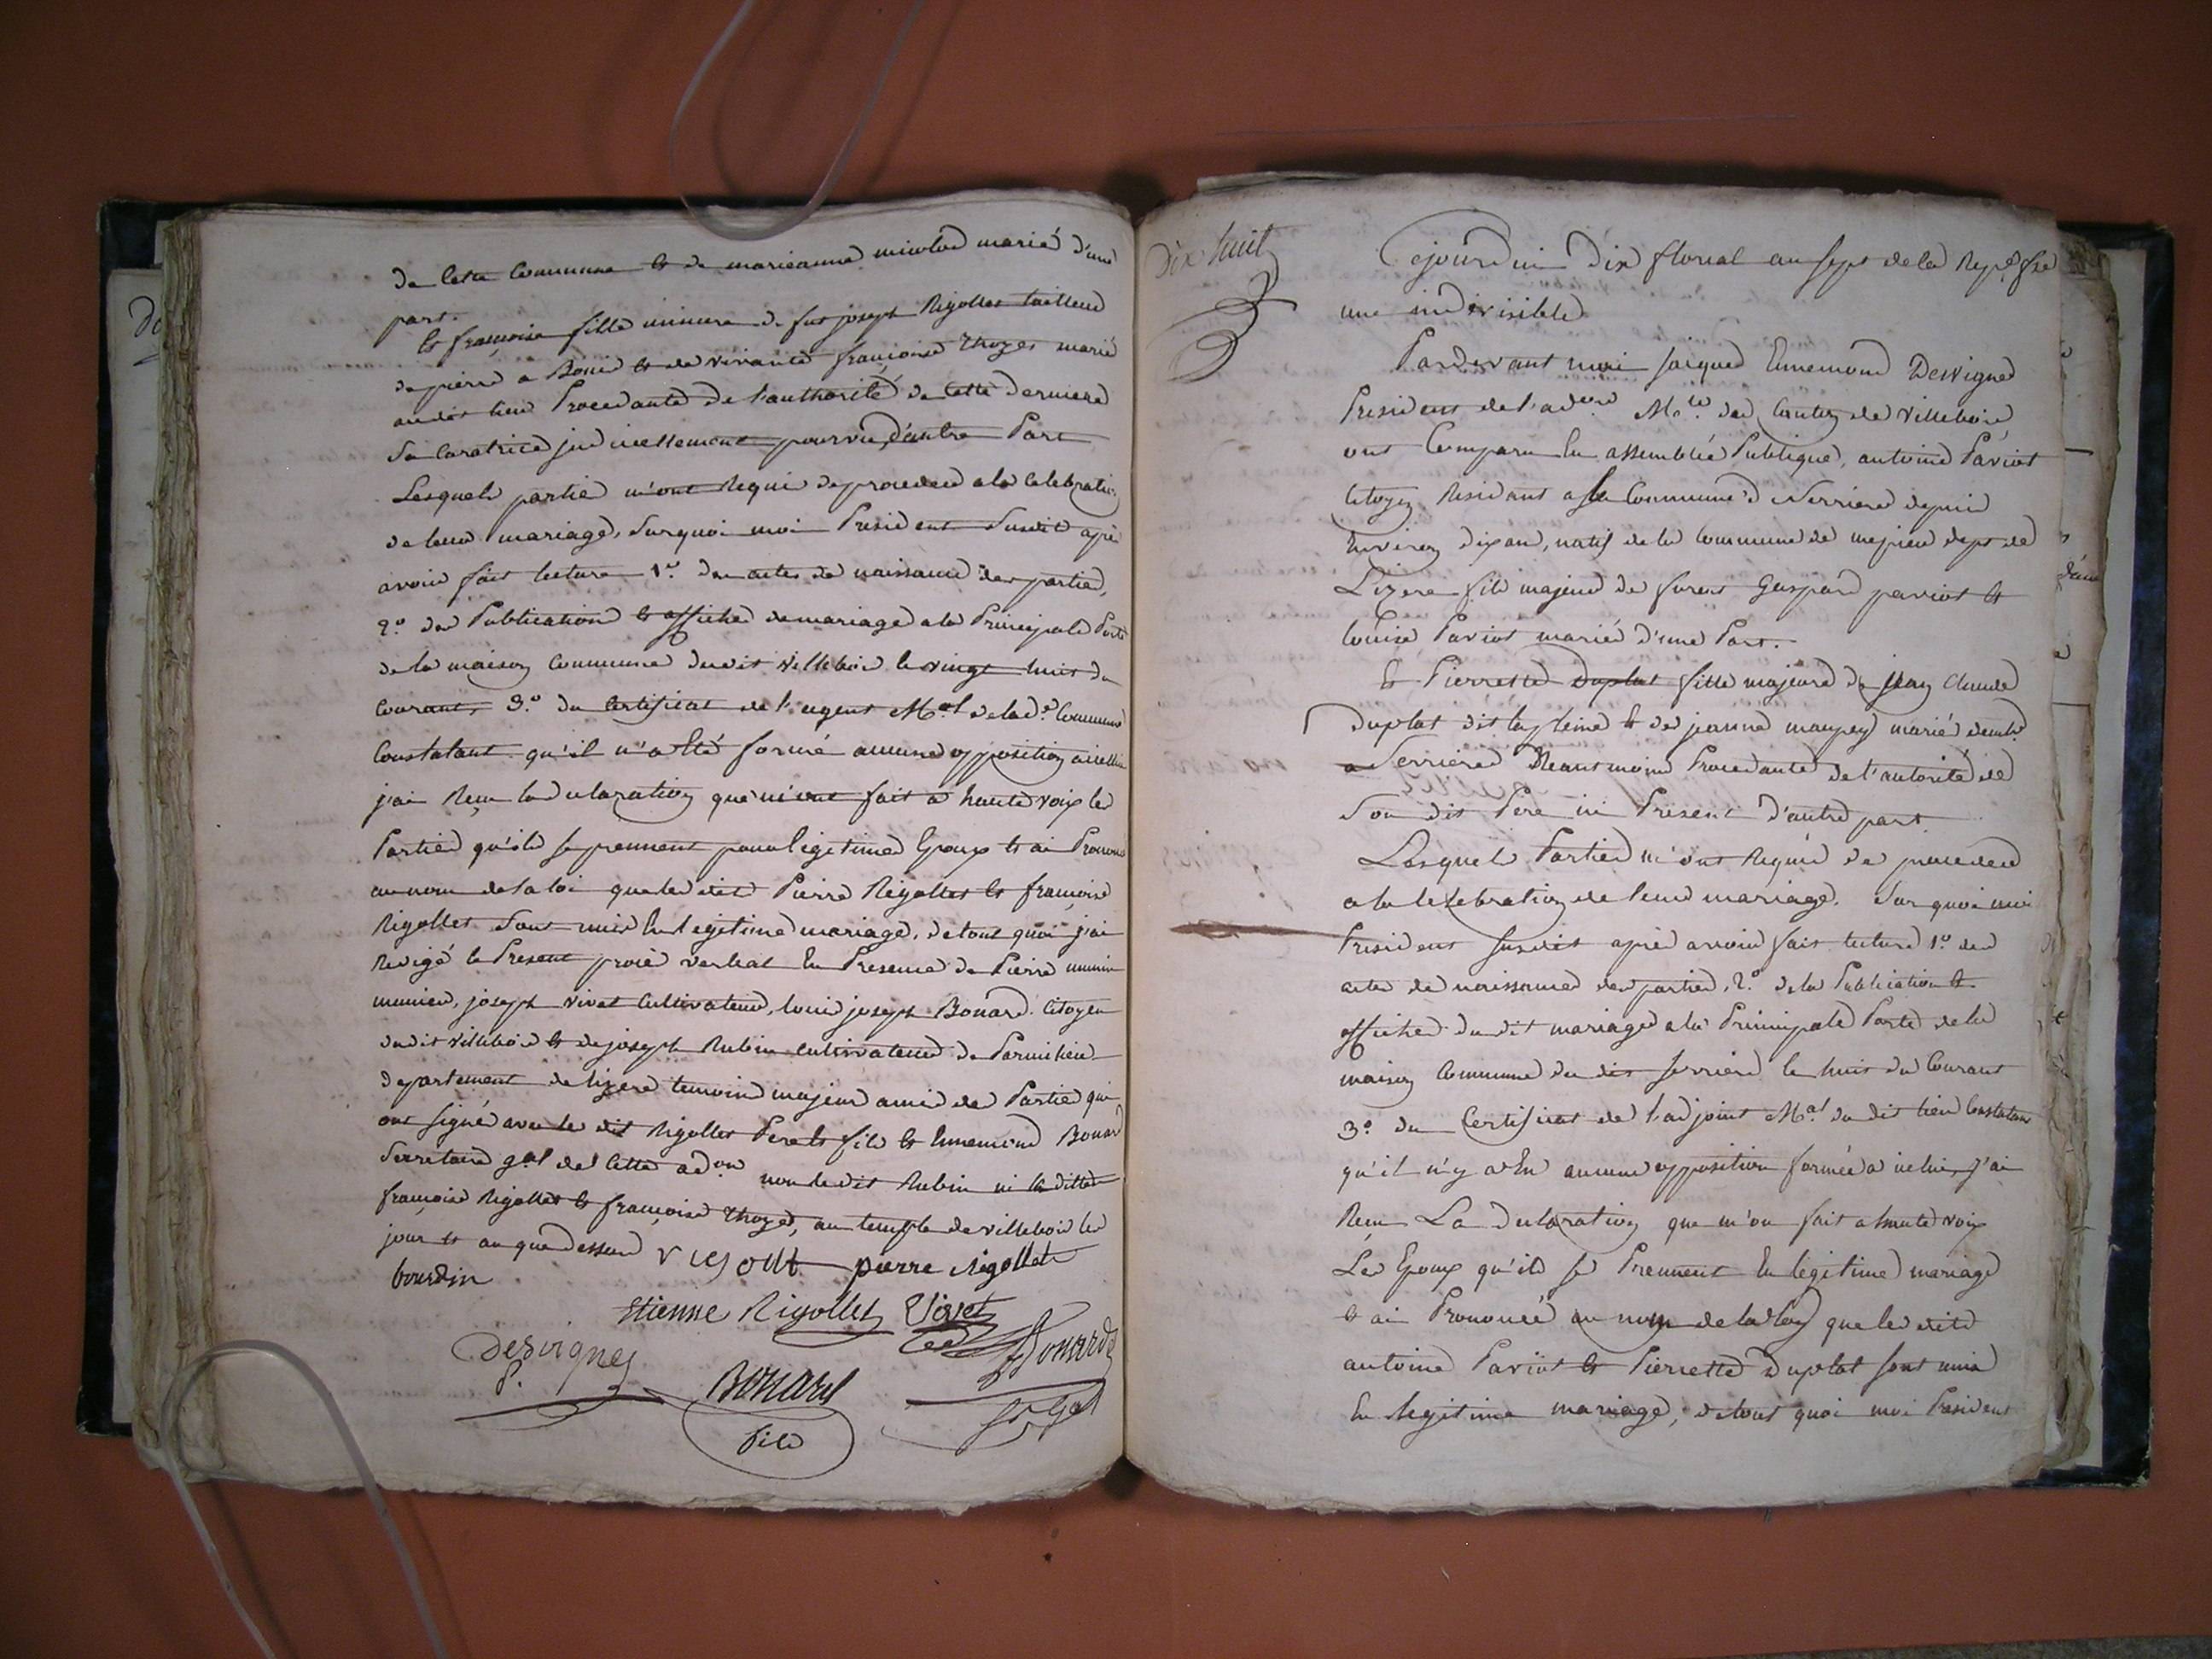 de cette Commune et de marieanne nicolas mariés d'une
part.
et françoise fille mineure de fut joseph Rigollet tailleur
de pierre a Bouis et de vivante françoise thoyes mariés
audit lieu Procedante de l'authorité de cette derniere
Sa Curatrice judiciellement pourvue, d'autre Part
Lesquels partie m'ont Requis de proceder a la Celebration
de leur mariage, Surquoi moi President Susdit après
avoir fait lecture 1.º des actes de naissance des parties,
2.º de Publication et affiche de mariage a la Principale Porte
de la maison Commune dudit villebois le vingt huit du
Courant, 3.º du Certificat de l'agent M.al de lad.e Commune
Constatant qu'il n'a été formé aucune opposition a icelui
j'ai Reçu la declaration que m'ont fait a haute voix les
Parties qu'ils se prennent pour legitimes Epoux et ai Prononcé
au nom de la loi que les dits Pierre Rigollet et françoise
Rigollet Sont unis En legitime mariage, de tout quoi j'ai
Redigé le Present procès verbal En Presence de Pierre
munier, joseph vivet Cultivateur, louis joseph Bonard Citoyen
dudit villebois et de joseph Rubin cultivateur de Parmilieu
departement de lizere temoins majeurs amis des Parties qui
ont signé avec les dit Rigollet Pere et fils et Ennemond Bonard
Secretaire g.al de Cette ad.on non le dit Rubin ni les dittes
françoise Rigollet et françoise thoyes, au temple de villebois les
jour et an que dessus
bourdin pierre rigollet
Etienne Rigollet Vivet
Desvignes Bonard
P. Bonard
fils
Dix huit
Cejourdui Dix floreal an sept de la Rep.e fse
une indivisible
Pardevant moi jaique Ennemond Desvignes
President de l'ad.on M.le du Canton de Villebois
ont Comparu En assemblée Publique, antoine Paviot
Citoyen Residant a la Commune d Serriere depuis
Environ dix ans, natif de la Commune de mepieu dept de
L'izere fils majeur de furent Gaspard paviot et
louise Paviot mariés d'une Part.
Et Pierrette duplat fille majeure de jean Claude
duplat dit et de jeanne maupey mariés
a Serriere Neantmoins Procedante de l'autorité de
Son dit Pere ici Present d'autre part.
Lesquels Parties m'ont Requis de proceder
a la Celebration de leur mariage. Sur quoi moi
President susdit après avoir fait lecture 1.º des
actes de naissances des parties, 2.º de la Publication et
affiche du dit mariage a la Principale Porte de la
maison Commune du dit serriere le huit du Courant
3.º du Certificat de l'adjoint M.al du dit lieu Constatant
qu'il n'y a Eu aucune opposition formée a icelui, j'ai
Reçu La Declaration que m'on fait a haute voix
Les Epoux qu'ils se Prennent En legitime mariage
et ai Prononcé au nom de la loy que les dits
antoine Paviot et Pierrette Duplat sont unis
En legitime mariage, de tout quoi moi President